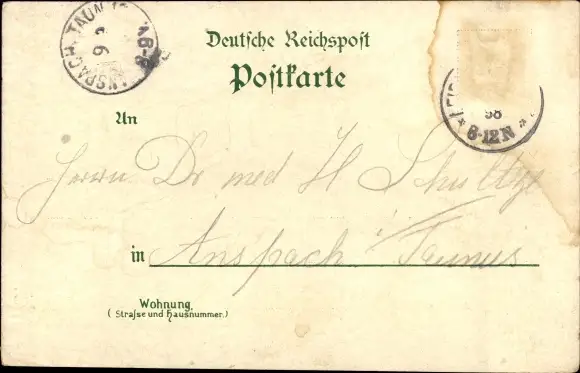 ANSPACH, TAUN
9 2
6-8
Deutsche Reichspost
Postkarte
98
8-12N
An
Herrn Dr med H Schultze
in Anspach Taunus
Wohnung
(Straſse und Hausnummer.)